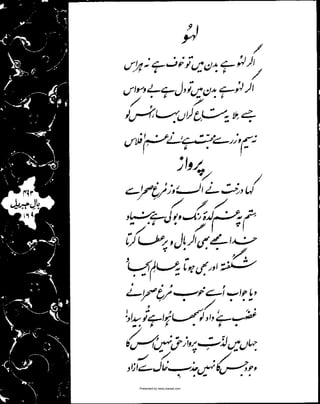 لہُو
اگر لہُو ہے بدن میں تو خوف ہے نہ ہراس
اگر لہُو ہے بدن میں تو دل ہے بے وسواس
جسے ملا یہ متاعِ گراں بہا، اس کو
نہ سیم و زر سے محبت ہے، نے غمِ افلاس
پرواز
کہا درخت نے اک روز مرغِ صحرا سے
ستم پہ غم کدۂ رنگ و بو کی ہے بنیاد
خدا مجھے بھی اگر بال و پر عطا کرتا
شگفتہ اور بھی ہوتا یہ عالمِ ایجاد
دیا جواب اسے خوب مرغِ صحرا نے
غضب ہے، داد کو سمجھا ہوا ہے تو بیداد!
جہاں میں لذتِ پرواز حق نہیں اس کا
وجود جس کا نہیں جذبِ خاک سے آزاد
بالِ جبریل
۱۶۹